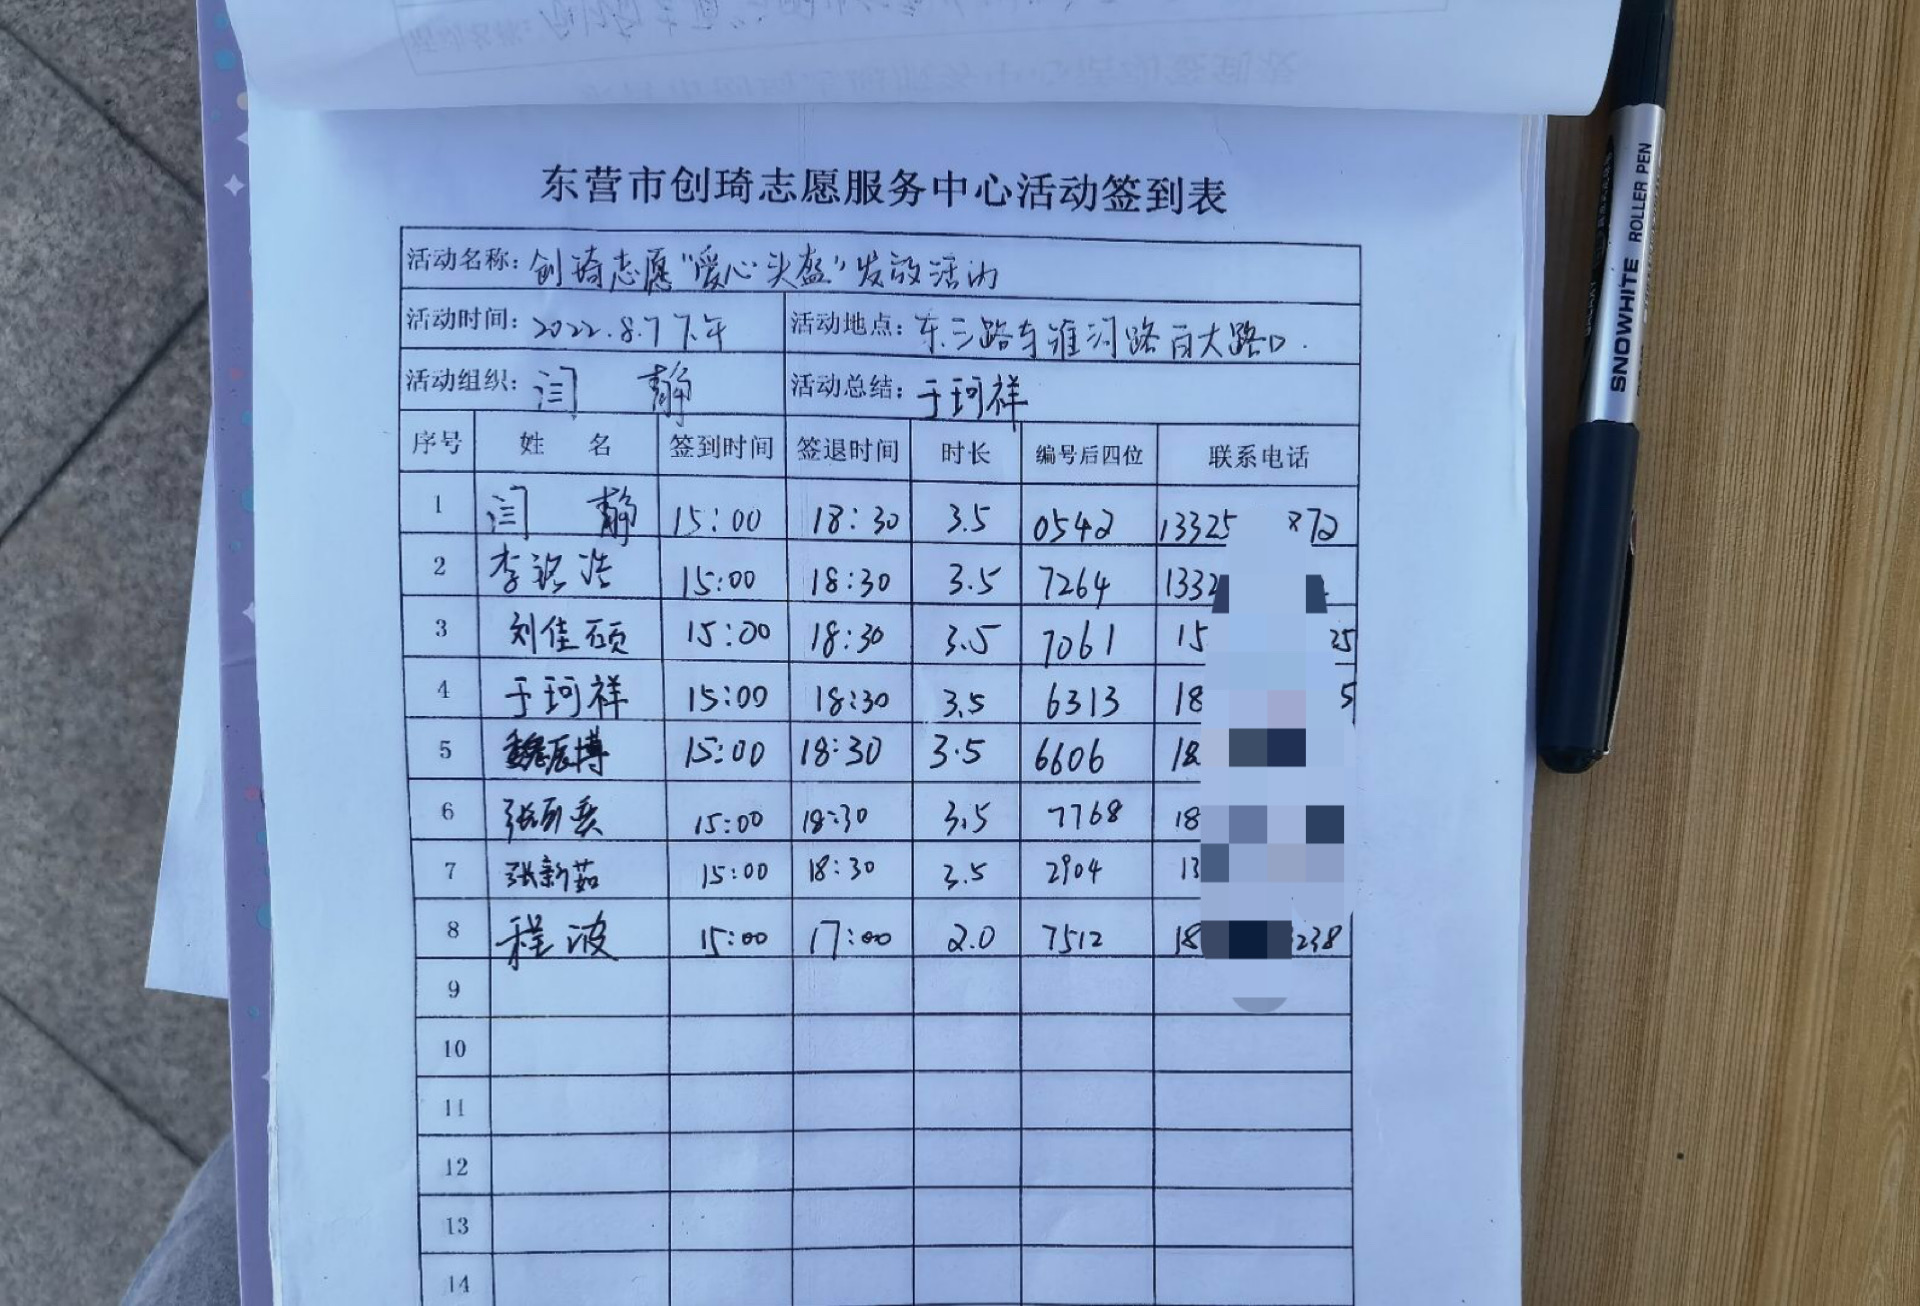 东营市创琦志愿服务中心活动签到表
活动名称: 创琦志愿"爱心头盔"发放活动
活动时间: 2022.8.7下午 活动地点: 东三路与淮河路百大路口.
活动组织: 闫 静 活动总结: 于珂祥
序号 姓 名 签到时间 签退时间 时长 编号后四位 联系电话
1 闫 静 15:00 18:30 3.5 0542 13325 872
2 李铭浩 15:00 18:30 3.5 7264 1332
3 刘佳硕 15:00 18:30 3.5 7061 15 25
4 于珂祥 15:00 18:30 3.5 6313 18 5
5 魏辰博 15:00 18:30 3.5 6606 18
6 张 15:00 18:30 3.5 7768 18
7 张新茹 15:00 18:30 3.5 2904 13
8 程波 15:00 17:00 2.0 7512 18 238
9
10
11
12
13
14
SNOWHITE ROLLER PEN